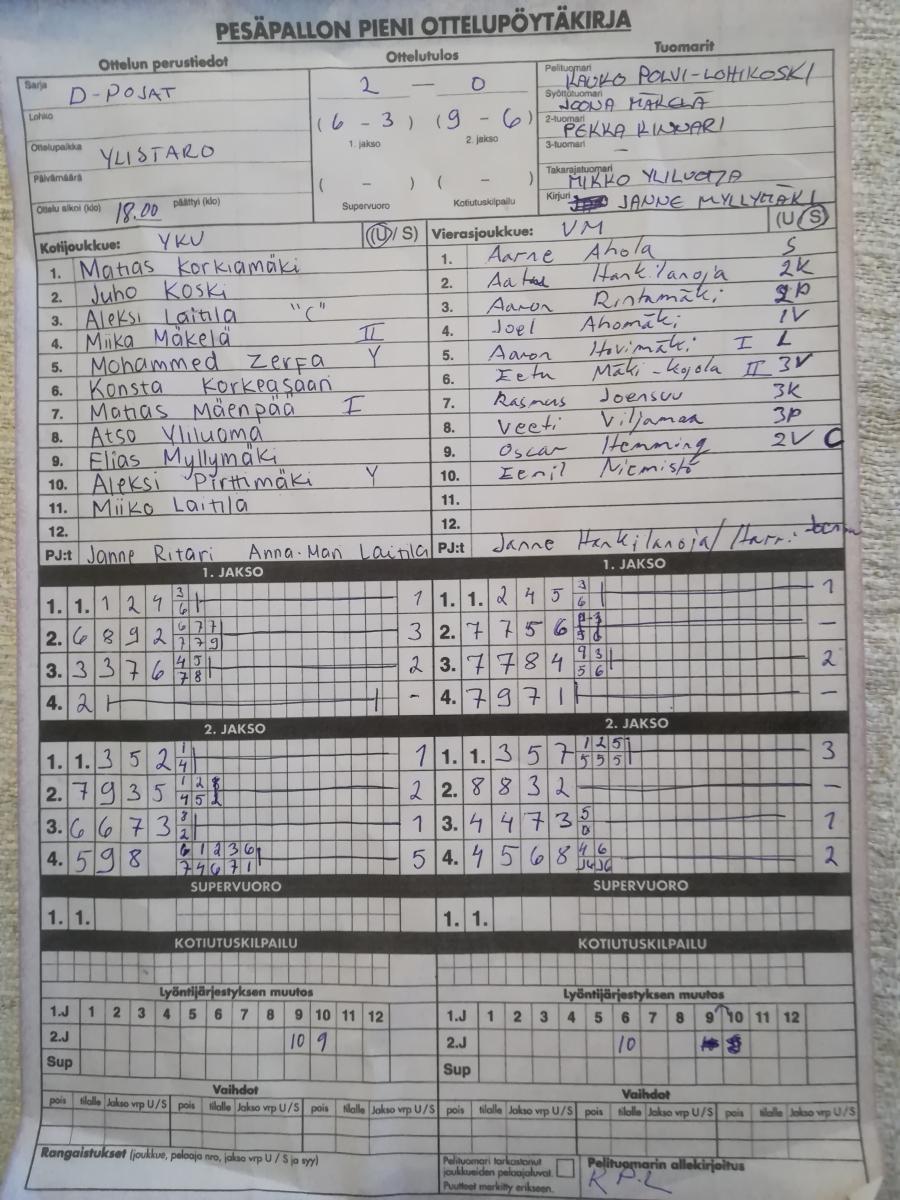 PESÄPALLON PIENI OTTELUPÖYTÄKIRJA
Ottelun perustiedot Ottelutulos Tuomarit
Sarja D-POJAT
Lohko
Ottelupaikka YLISTARO
Päivämäärä
Ottelu alkoi (klo) 18.00 päättyi (klo)
2 — 0
(6 - 3) (9 - 6)
1. jakso 2. jakso
( - ) ( - )
Supervuoro Kotiutuskilpailu
Pelituomari KAUKO POLVI-LOHIKOSKI
Syöttötuomari JOONA MÄKELÄ
2-tuomari PEKKA KINNARI
3-tuomari —
Takarajatuomari MIKKO YLILUOMA
Kirjuri JANNE MYLLYMÄKI
Kotijoukkue: YKV (U/S)
1. Matias Korkiamäki
2. Juho Koski
3. Aleksi Laitila "C"
4. Miika Mäkelä II
5. Mohammed Zerfa Y
6. Konsta Korkeasaari
7. Matias Mäenpää I
8. Atso Yliluoma
9. Elias Myllymäki
10. Aleksi Pirttimäki Y
11. Miiko Laitila
12.
PJ:t Janne Ritari Anna-Mari Laitila
Vierasjoukkue: VM (U/S)
1. Aarne Ahola S
2. Hankilanoja 2K
3. Aaron Rintamäki 2P
4. Joel Ahomäki 1V
5. Aaron Hovimäki I L
6. Eetu Mäki-Kojola II 3V
7. Rasmus Joensuu 3K
8. Veeti Viljamaa 3P
9. Oscar Hemming 2V C
10. Eemil Niemistö
11.
12.
PJ:t Janne Hankilanoja/Harri
1. JAKSO
1. 1. 1 2 4 3 1
6
2. 6 8 9 2 6 7 7 3
7 7 9
3. 3 3 7 6 4 5 2
7 8
4. 2 -
1. JAKSO
1. 1. 2 4 5 3 1
6
2. 7 7 5 6 —
3. 7 7 8 4 9 3 2
5 6
4. 7 9 7 1 —
2. JAKSO
1. 1. 3 5 2 1 1
4
2. 7 9 3 5 1 2 8 2
4 5 2
3. 6 6 7 3 8 1
2
4. 5 9 8 6 1 2 3 6 5
7 4 6 7 1
2. JAKSO
1. 1. 3 5 7 1 2 5 3
5 5 5
2. 8 8 3 2 —
3. 4 4 7 3 5 1
0
4. 4 5 6 8 4 6 2
SUPERVUORO SUPERVUORO
1. 1. 1. 1.
KOTIUTUSKILPAILU KOTIUTUSKILPAILU
Lyöntijärjestyksen muutos
1.J 1 2 3 4 5 6 7 8 9 10 11 12
2.J 10 9
Sup
Lyöntijärjestyksen muutos
1.J 1 2 3 4 5 6 7 8 9 10 11 12
2.J 10
Sup
Vaihdot Vaihdot
pois tilalle Jakso vrp U/S pois tilalle Jakso vrp U/S pois tilalle Jakso vrp U/S
pois tilalle Jakso vrp U/S pois tilalle Jakso vrp U/S pois tilalle Jakso vrp U/S
Rangaistukset (joukkue, pelaaja nro, jakso vrp U / S ja syy)
Pelituomari tarkastanut
joukkueiden pelaajaluvat.
Puutteet merkitty erikseen.
Pelituomarin allekirjoitus
K P-L